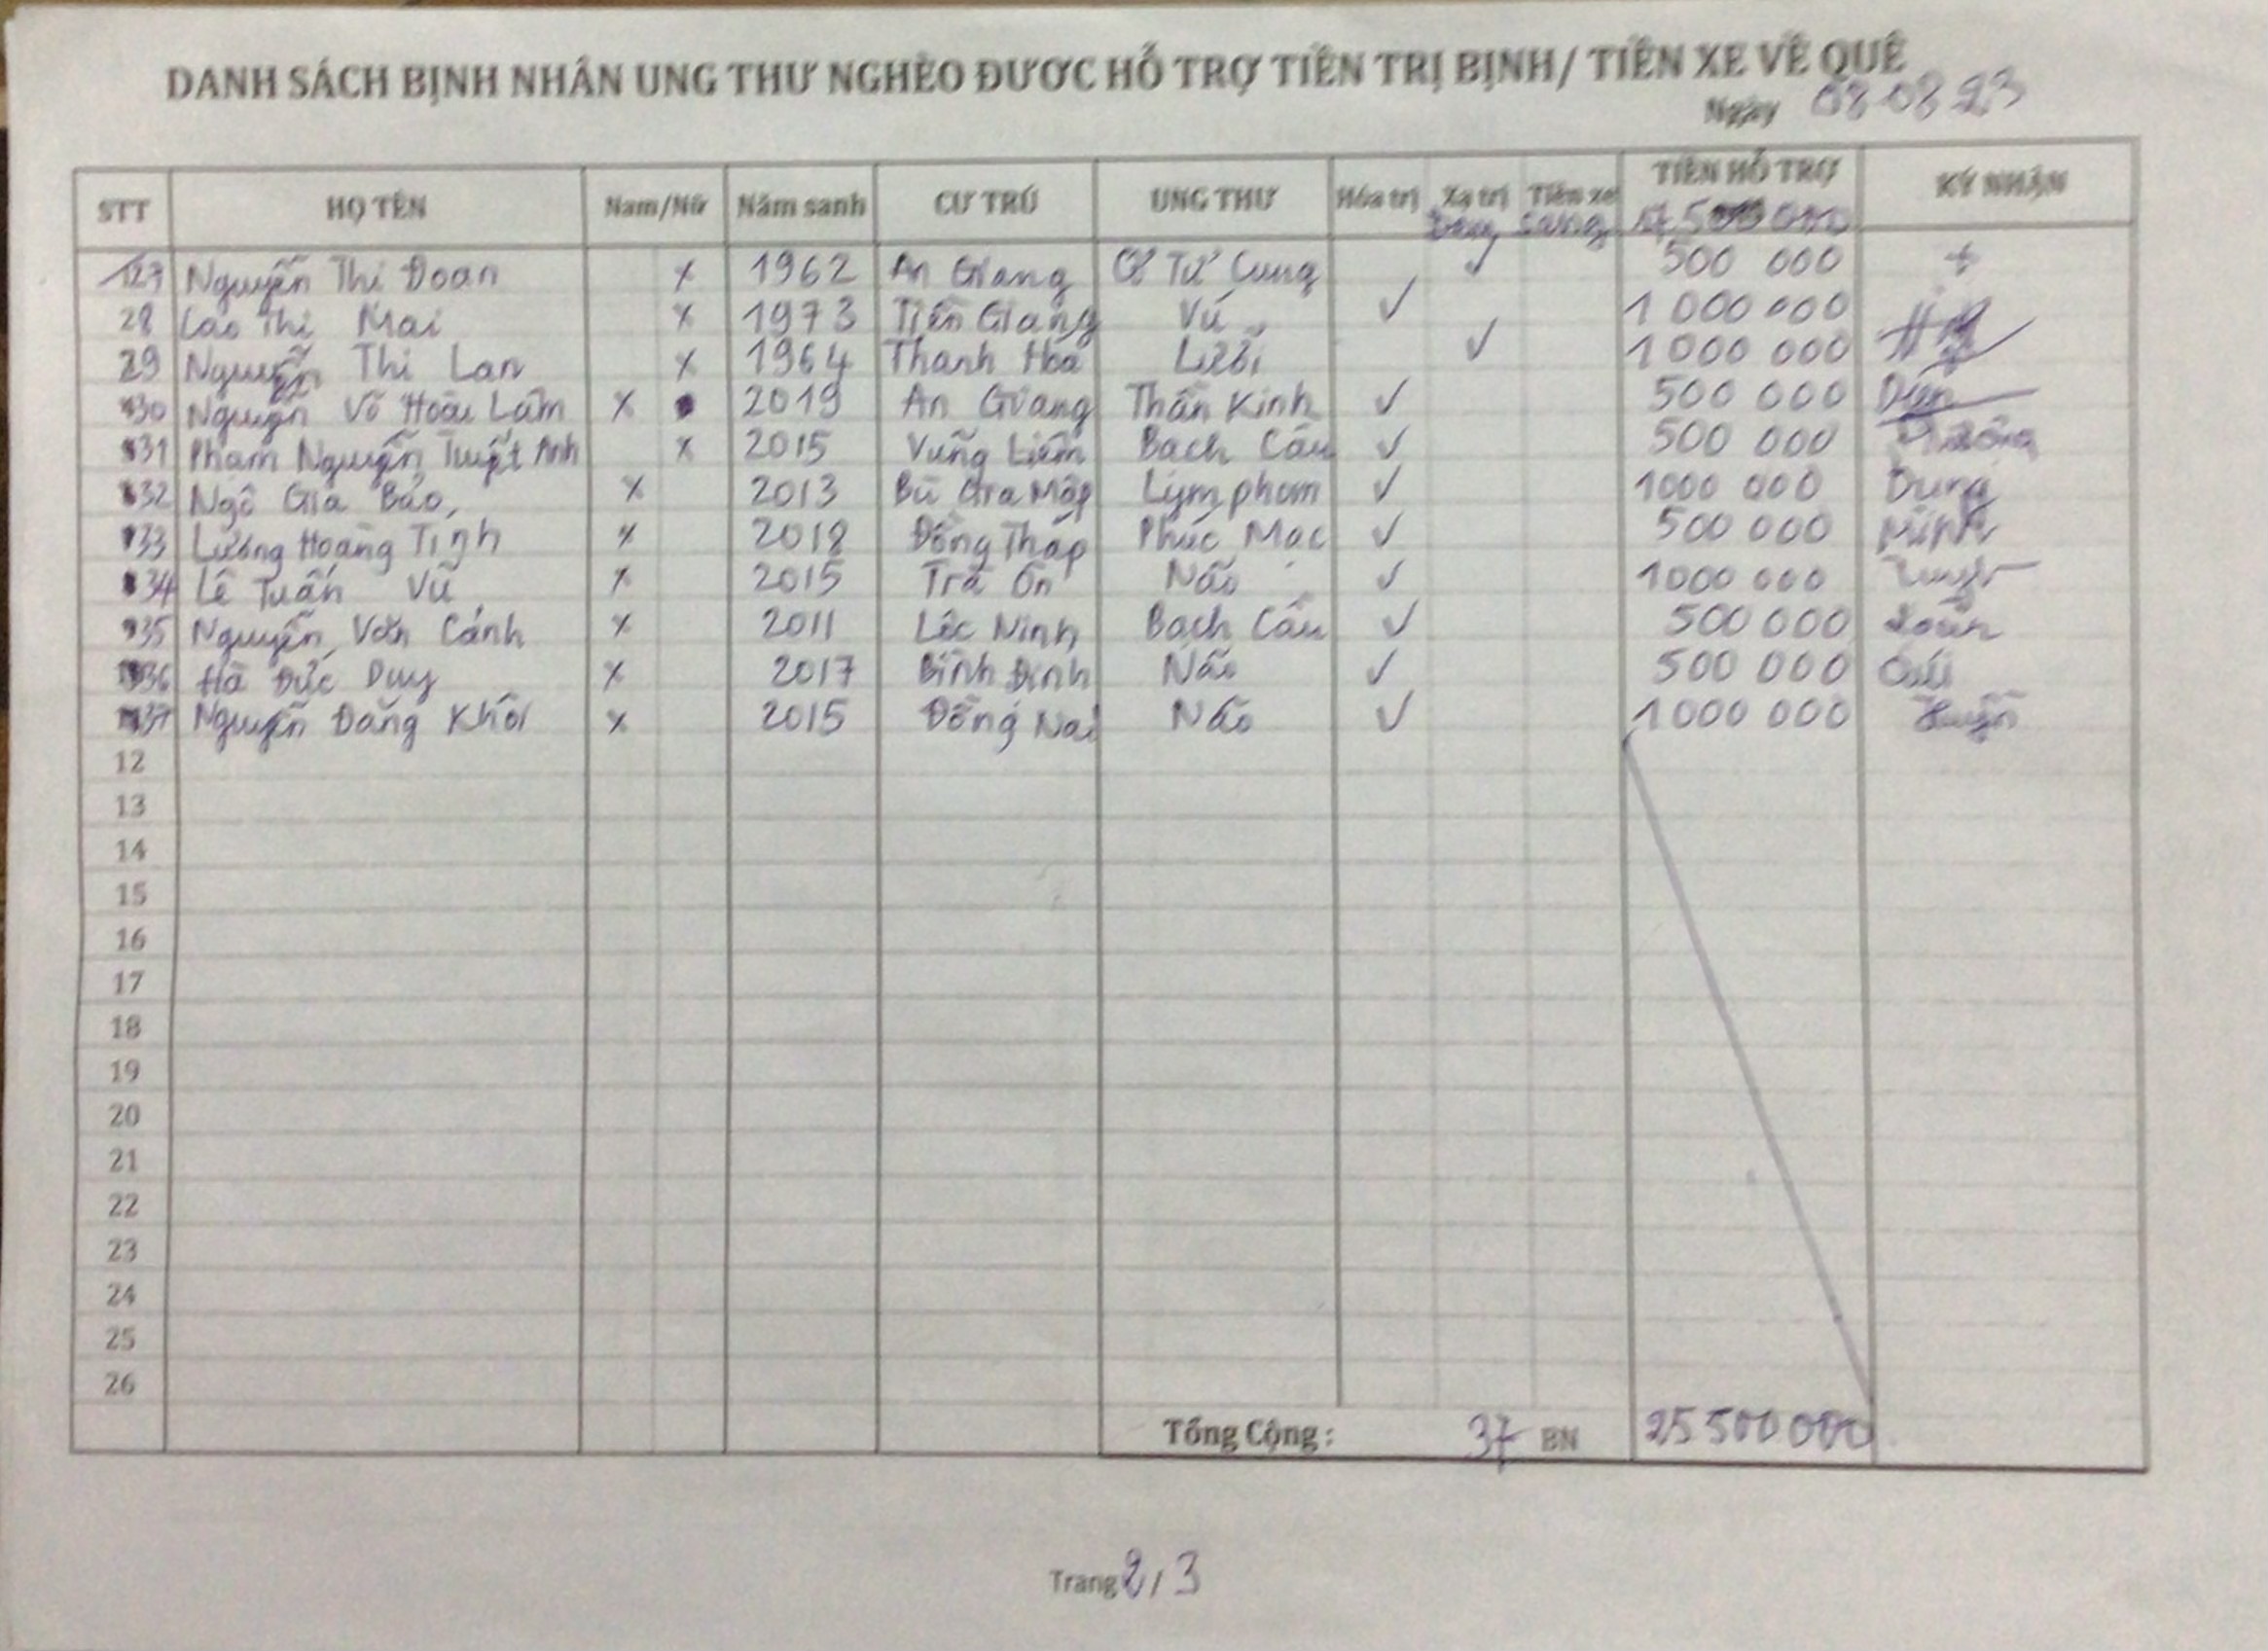 DANH SÁCH BỊNH NHÂN UNG THƯ NGHÈO ĐƯƠC HỖ TRỢ TIỀN TRỊ BỊNH/ TIỀN XE VỀ QUÊ
Ngày 08 08 23
STT HỌ TÊN Nam/Nữ Năm sanh CƯ TRÚ UNG THƯ Hóa trị Xạ trị Tiền xe TIỀN HỖ TRỢ KÝ NHẬN
sang
27 Nguyễn Thi Đoan x 1962 An Giang Tử Cung ✓ 500 000 +
28 Cao Thi Mai x 1973 Tiền Giang Vú ✓ 1 000 000
29 Nguyễn Thi Lan x 1964 Thanh Hoá Lưỡi ✓ 1 000 000
30 Nguyễn Võ Hoài Lâm x 2019 An Giang Thần Kinh ✓ 500 000
31 Phạm Nguyễn Tuyết Anh x 2015 Vũng Liêm Bạch Cầu ✓ 500 000
32 Ngô Gia Bảo x 2013 Bù Gia Mập Lymphom ✓ 1000 000 Dung
33 Lương Hoàng Tính x 2018 Đồng Tháp Phúc Mạc ✓ 500 000 Minh
34 Lê Tuấn Vũ x 2015 Trà Ôn Não ✓ 1000 000
35 Nguyễn Văn Cảnh x 2011 Lộc Ninh Bạch Cầu ✓ 500 000
36 Hà Đức Duy x 2017 Bình Định Não ✓ 500 000
37 Nguyễn Đăng Khôi x 2015 Đồng Nai Não ✓ 1 000 000
12
13
14
15
16
17
18
19
20
21
22
23
24
25
26
Tổng Cộng : 37 BN 25 500 000
Trang 2 / 3